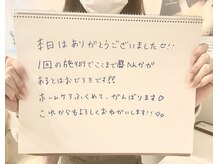 本日はありがとうございましたせ!!
1回の施術でここまで変化が
あるとはおどろきです!!
ホームケアふくめて、がんばります♡
これからもよろしくおねがいします!!